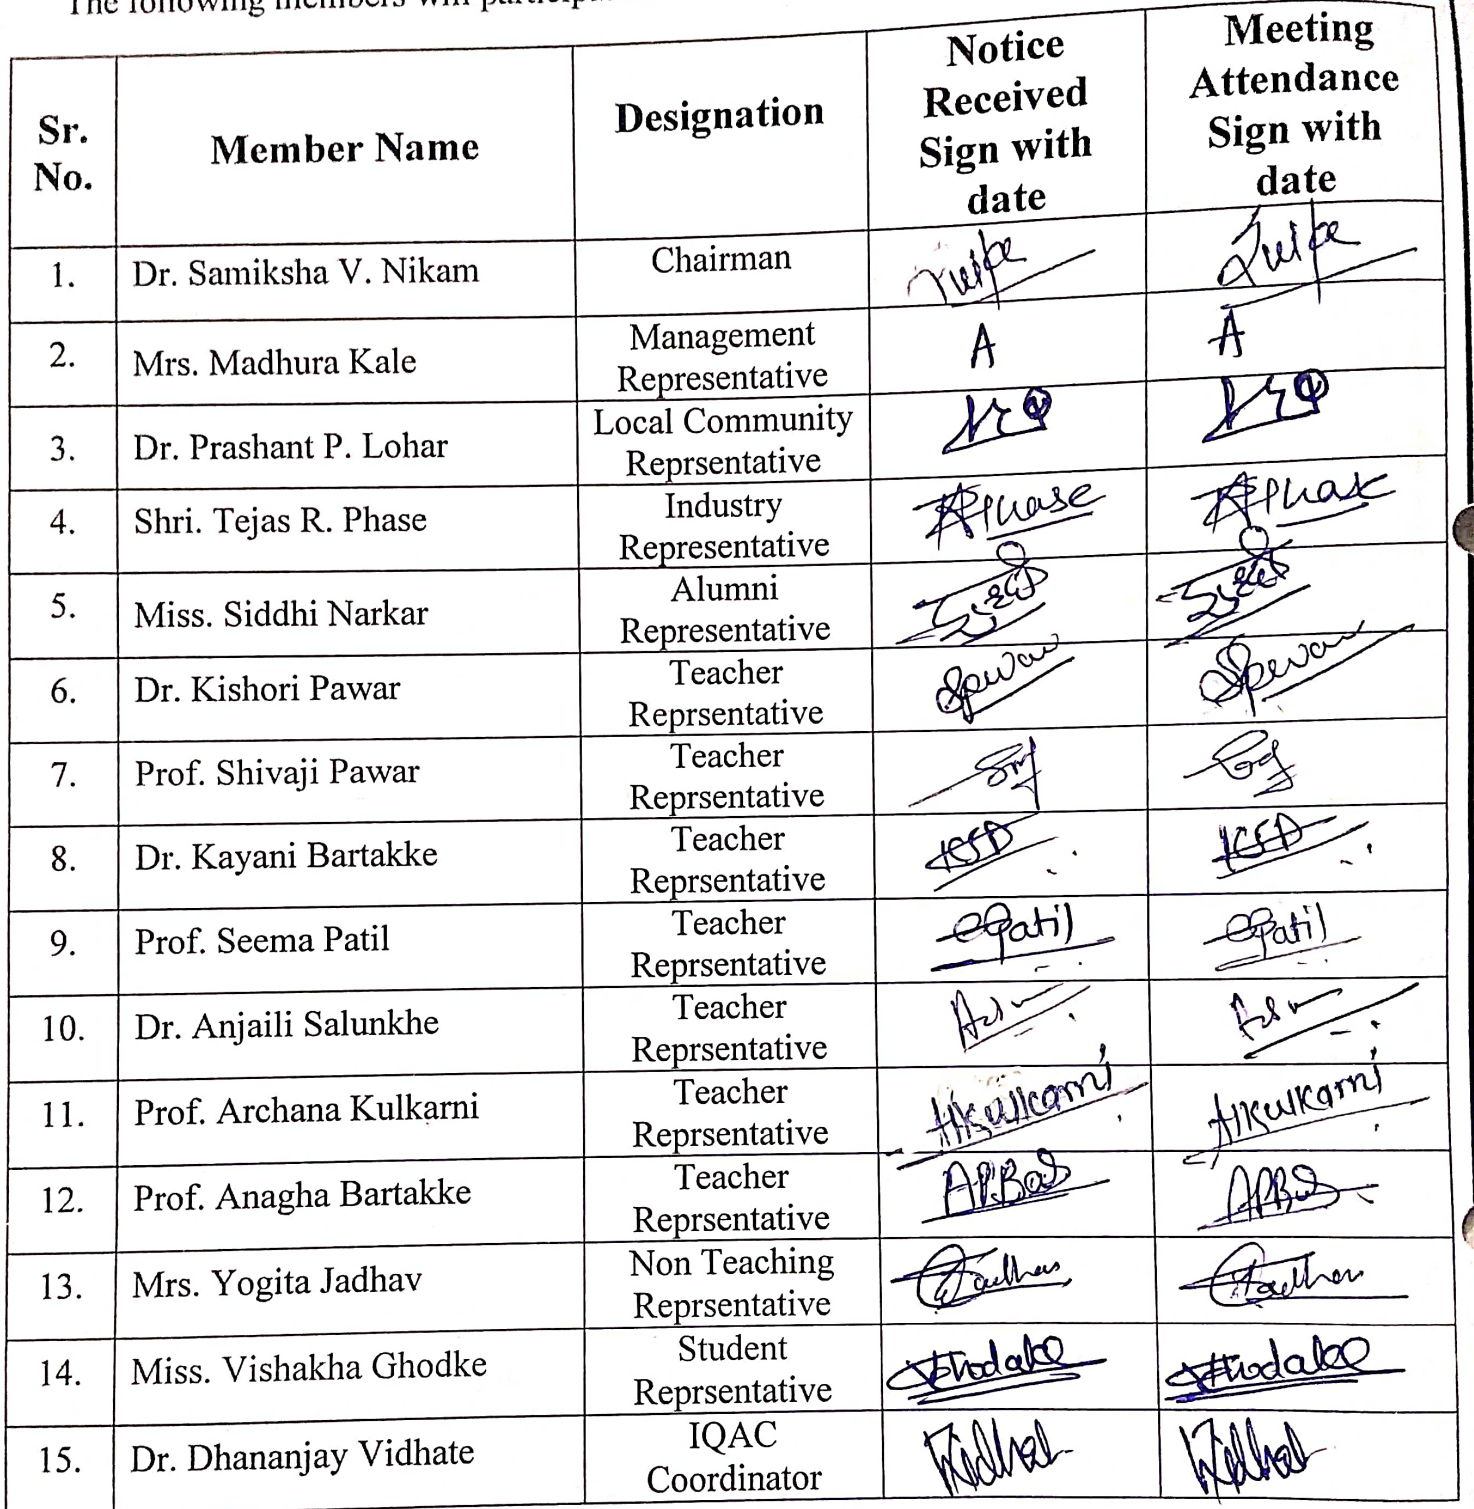 The following members will
Sr. No. Member Name Designation Notice Received Sign with date Meeting Attendance Sign with date
1. Dr. Samiksha V. Nikam Chairman
2. Mrs. Madhura Kale Management Representative A A
3. Dr. Prashant P. Lohar Local Community Reprsentative
4. Shri. Tejas R. Phase Industry Representative
5. Miss. Siddhi Narkar Alumni Representative
6. Dr. Kishori Pawar Teacher Reprsentative
7. Prof. Shivaji Pawar Teacher Reprsentative
8. Dr. Kayani Bartakke Teacher Reprsentative
9. Prof. Seema Patil Teacher Reprsentative
10. Dr. Anjaili Salunkhe Teacher Reprsentative
11. Prof. Archana Kulkarni Teacher Reprsentative
12. Prof. Anagha Bartakke Teacher Reprsentative
13. Mrs. Yogita Jadhav Non Teaching Reprsentative
14. Miss. Vishakha Ghodke Student Reprsentative
15. Dr. Dhananjay Vidhate IQAC Coordinator